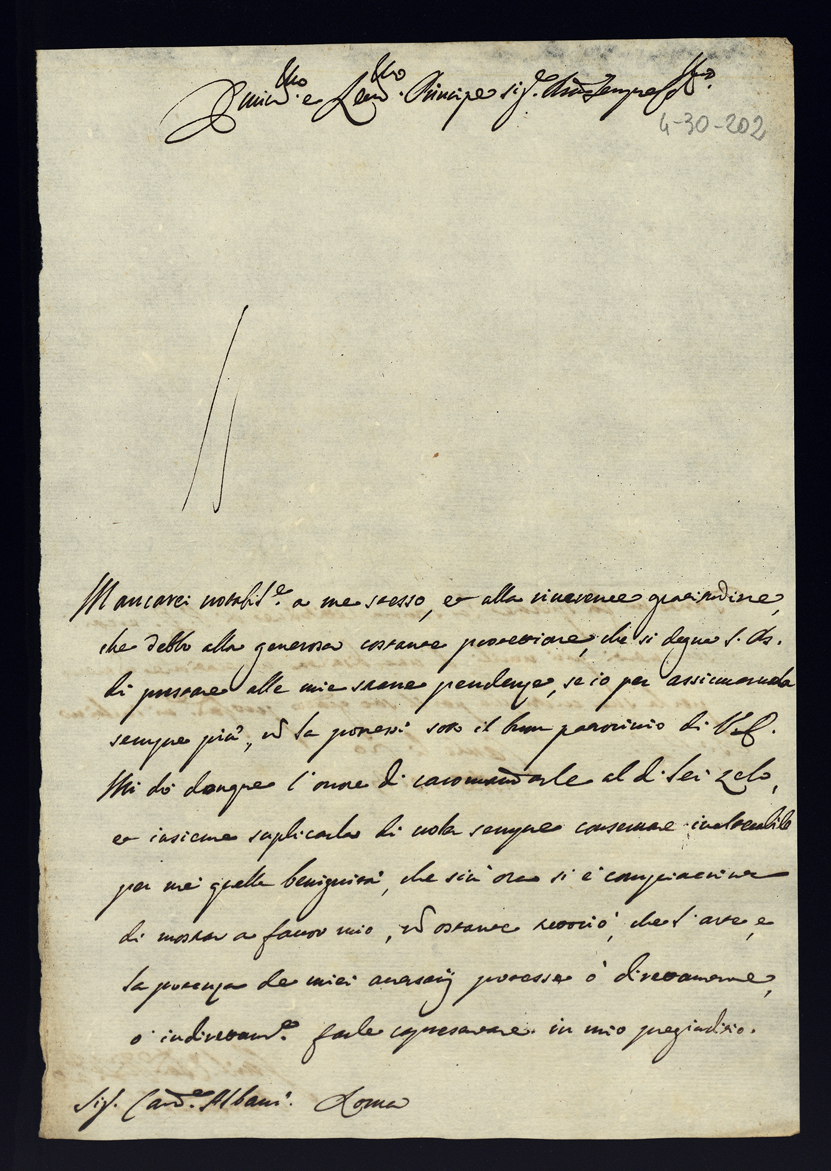 Emin.mo e Rev.mo Principe Sig.r
4-30-202
Mancarei notabil.e a me stesso, et alla riverente gratitudine,
che debbo alla generosa costante protettione, che si degna S. As.
di prestare alle mie strane pendenze, se io per assicurarmela
sempre più, non la ponessi sotto il buon patrocinio di V. E.
Mi dò donque l'onore di raccomandarle al di Lei zelo,
et insieme suplicarla di voler sempre conservare inalterabile
per me quella benignità, che sin'ora si è compiaciuta
di mostrar a favor mio, non ostante tuttociò, che l'arte, e
la potenza de miei aversarij potesse ò direttamente,
ò indirettam.e farle rapresentare in mio pregiuditio.
Sig.r Card.e Albani. Roma